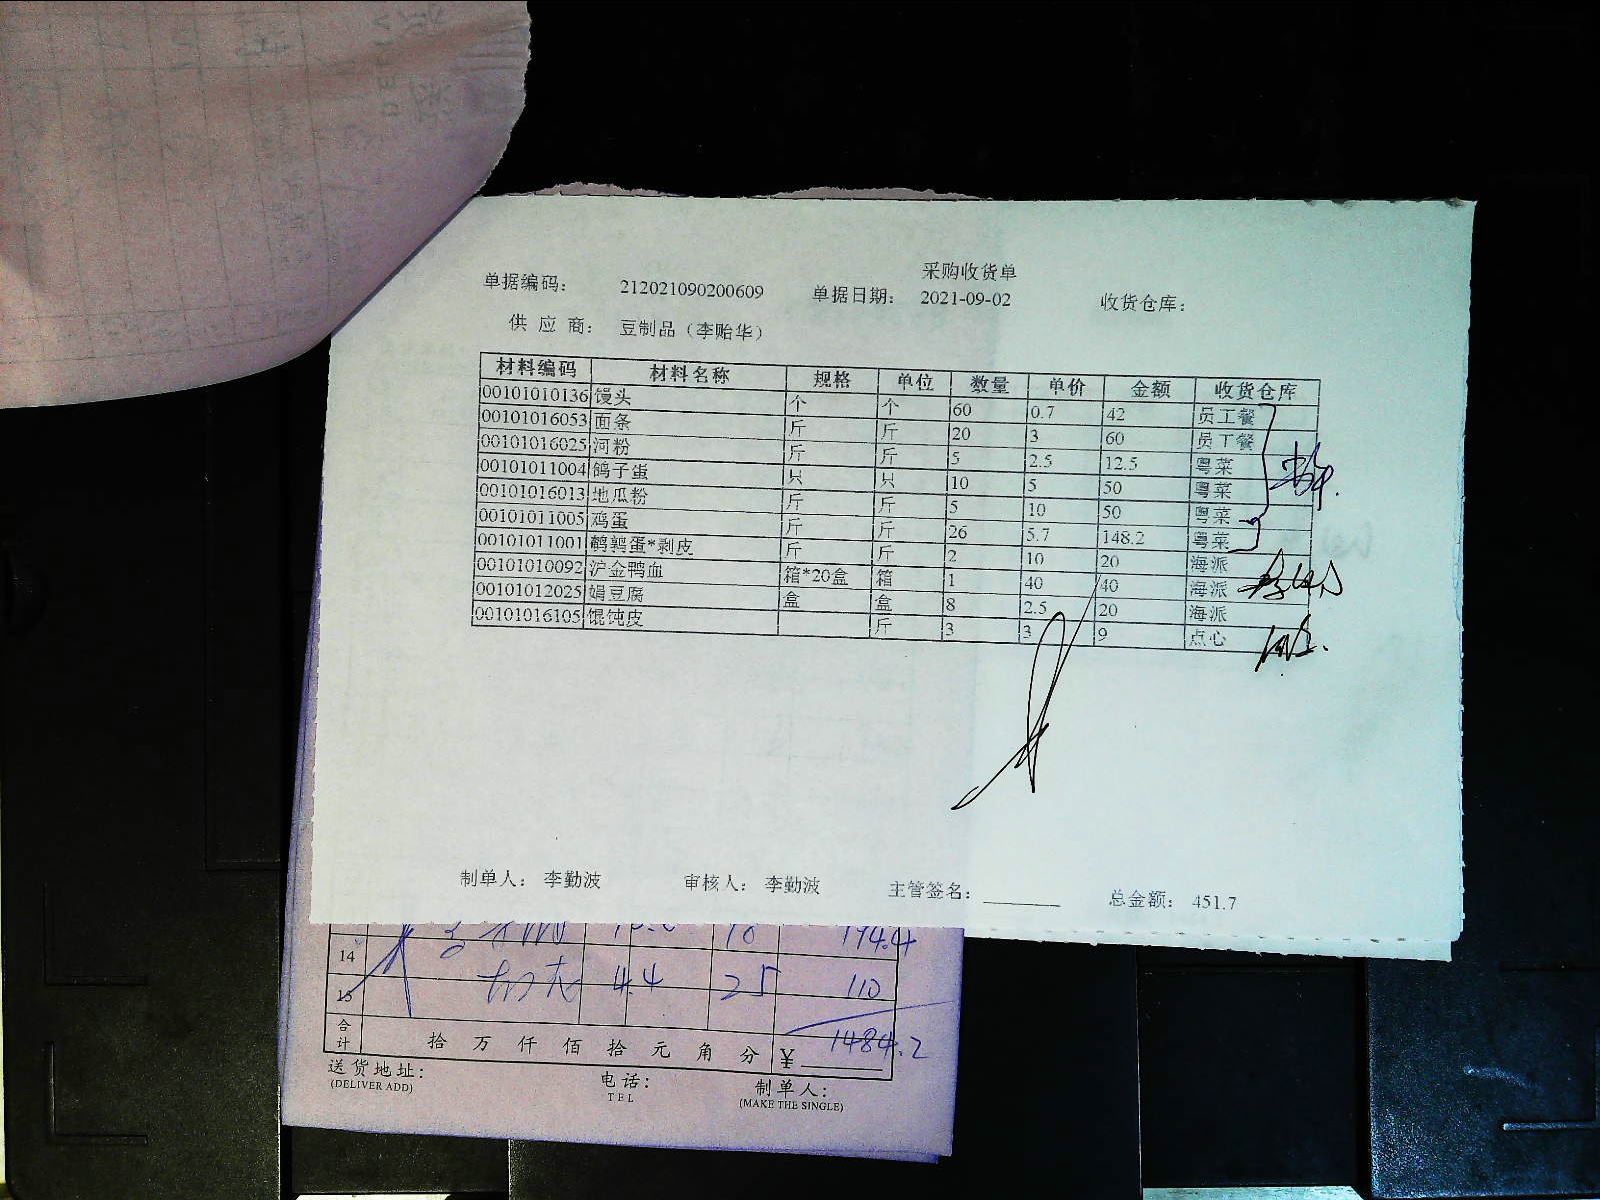 采购收货单
单据编码： 212021090200609 单据日期： 2021-09-02 收货仓库：
供 应 商： 豆制品（李贻华）
材料编码 材料名称 规格 单位 数量 单价 金额 收货仓库
00101010136 馒头 个 个 60 0.7 42 员工餐
00101016053 面条 斤 斤 20 3 60 员工餐
00101016025 河粉 斤 斤 5 2.5 12.5 粤菜
00101011004 鸽子蛋 只 只 10 5 50 粤菜
00101016013 地瓜粉 斤 斤 5 10 50 粤菜
00101011005 鸡蛋 斤 斤 26 5.7 148.2 粤菜
00101011001 鹌鹑蛋*剥皮 斤 斤 2 10 20 海派
00101010092 沪金鸭血 箱*20盒 箱 1 40 40 海派
00101012025 娟豆腐 盒 盒 8 2.5 20 海派
00101016105 馄饨皮 斤 3 3 9 点心
制单人： 李勤波 审核人： 李勤波 主管签名： 总金额： 451.7
18 194.4
14 4.4 25 110
15
合计 拾 万 仟 佰 拾 元 角 分 ¥ 1484.2
送货地址： 电话： 制单人：
(DELIVER ADD) TEL (MAKE THE SINGLE)